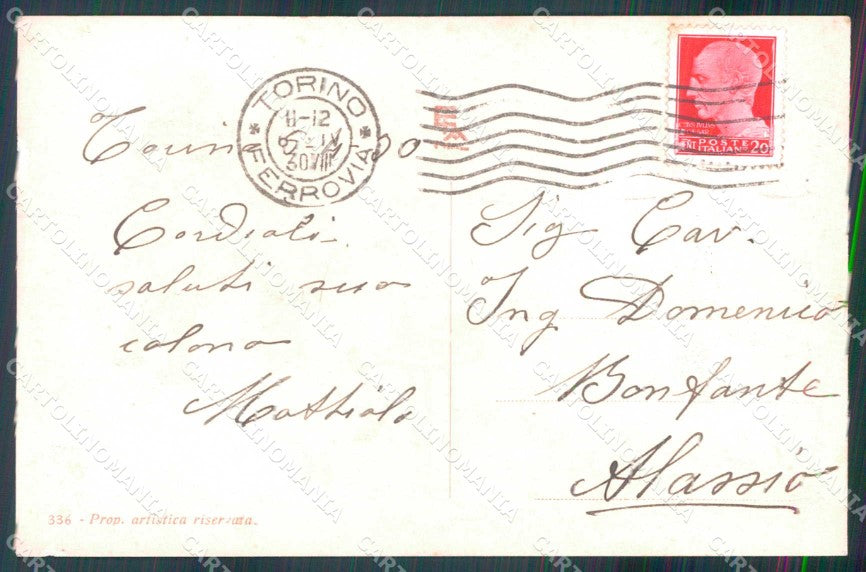 TORINO
11-12
30 VIII
FERROVIA
POSTE
ITALIANE
CENT 20
Torino
30
Cordiali
saluti suo
colono
Mattiolo
Sig Cav.
Ing Domenico
Bonfante
Alassio
336 - Prop. artistica riservata.
CARTOLINOMANIA